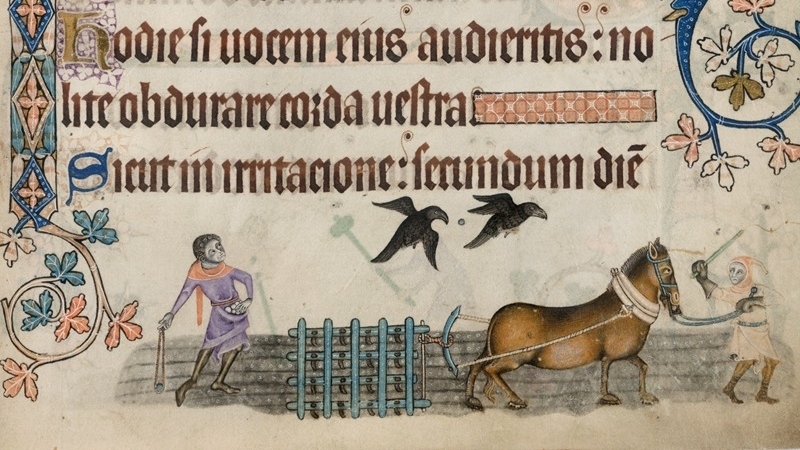 Hodie si uocem eius audieritis: no
lite obdurare corda uestra.
Sicut in irritacione: secundum diē